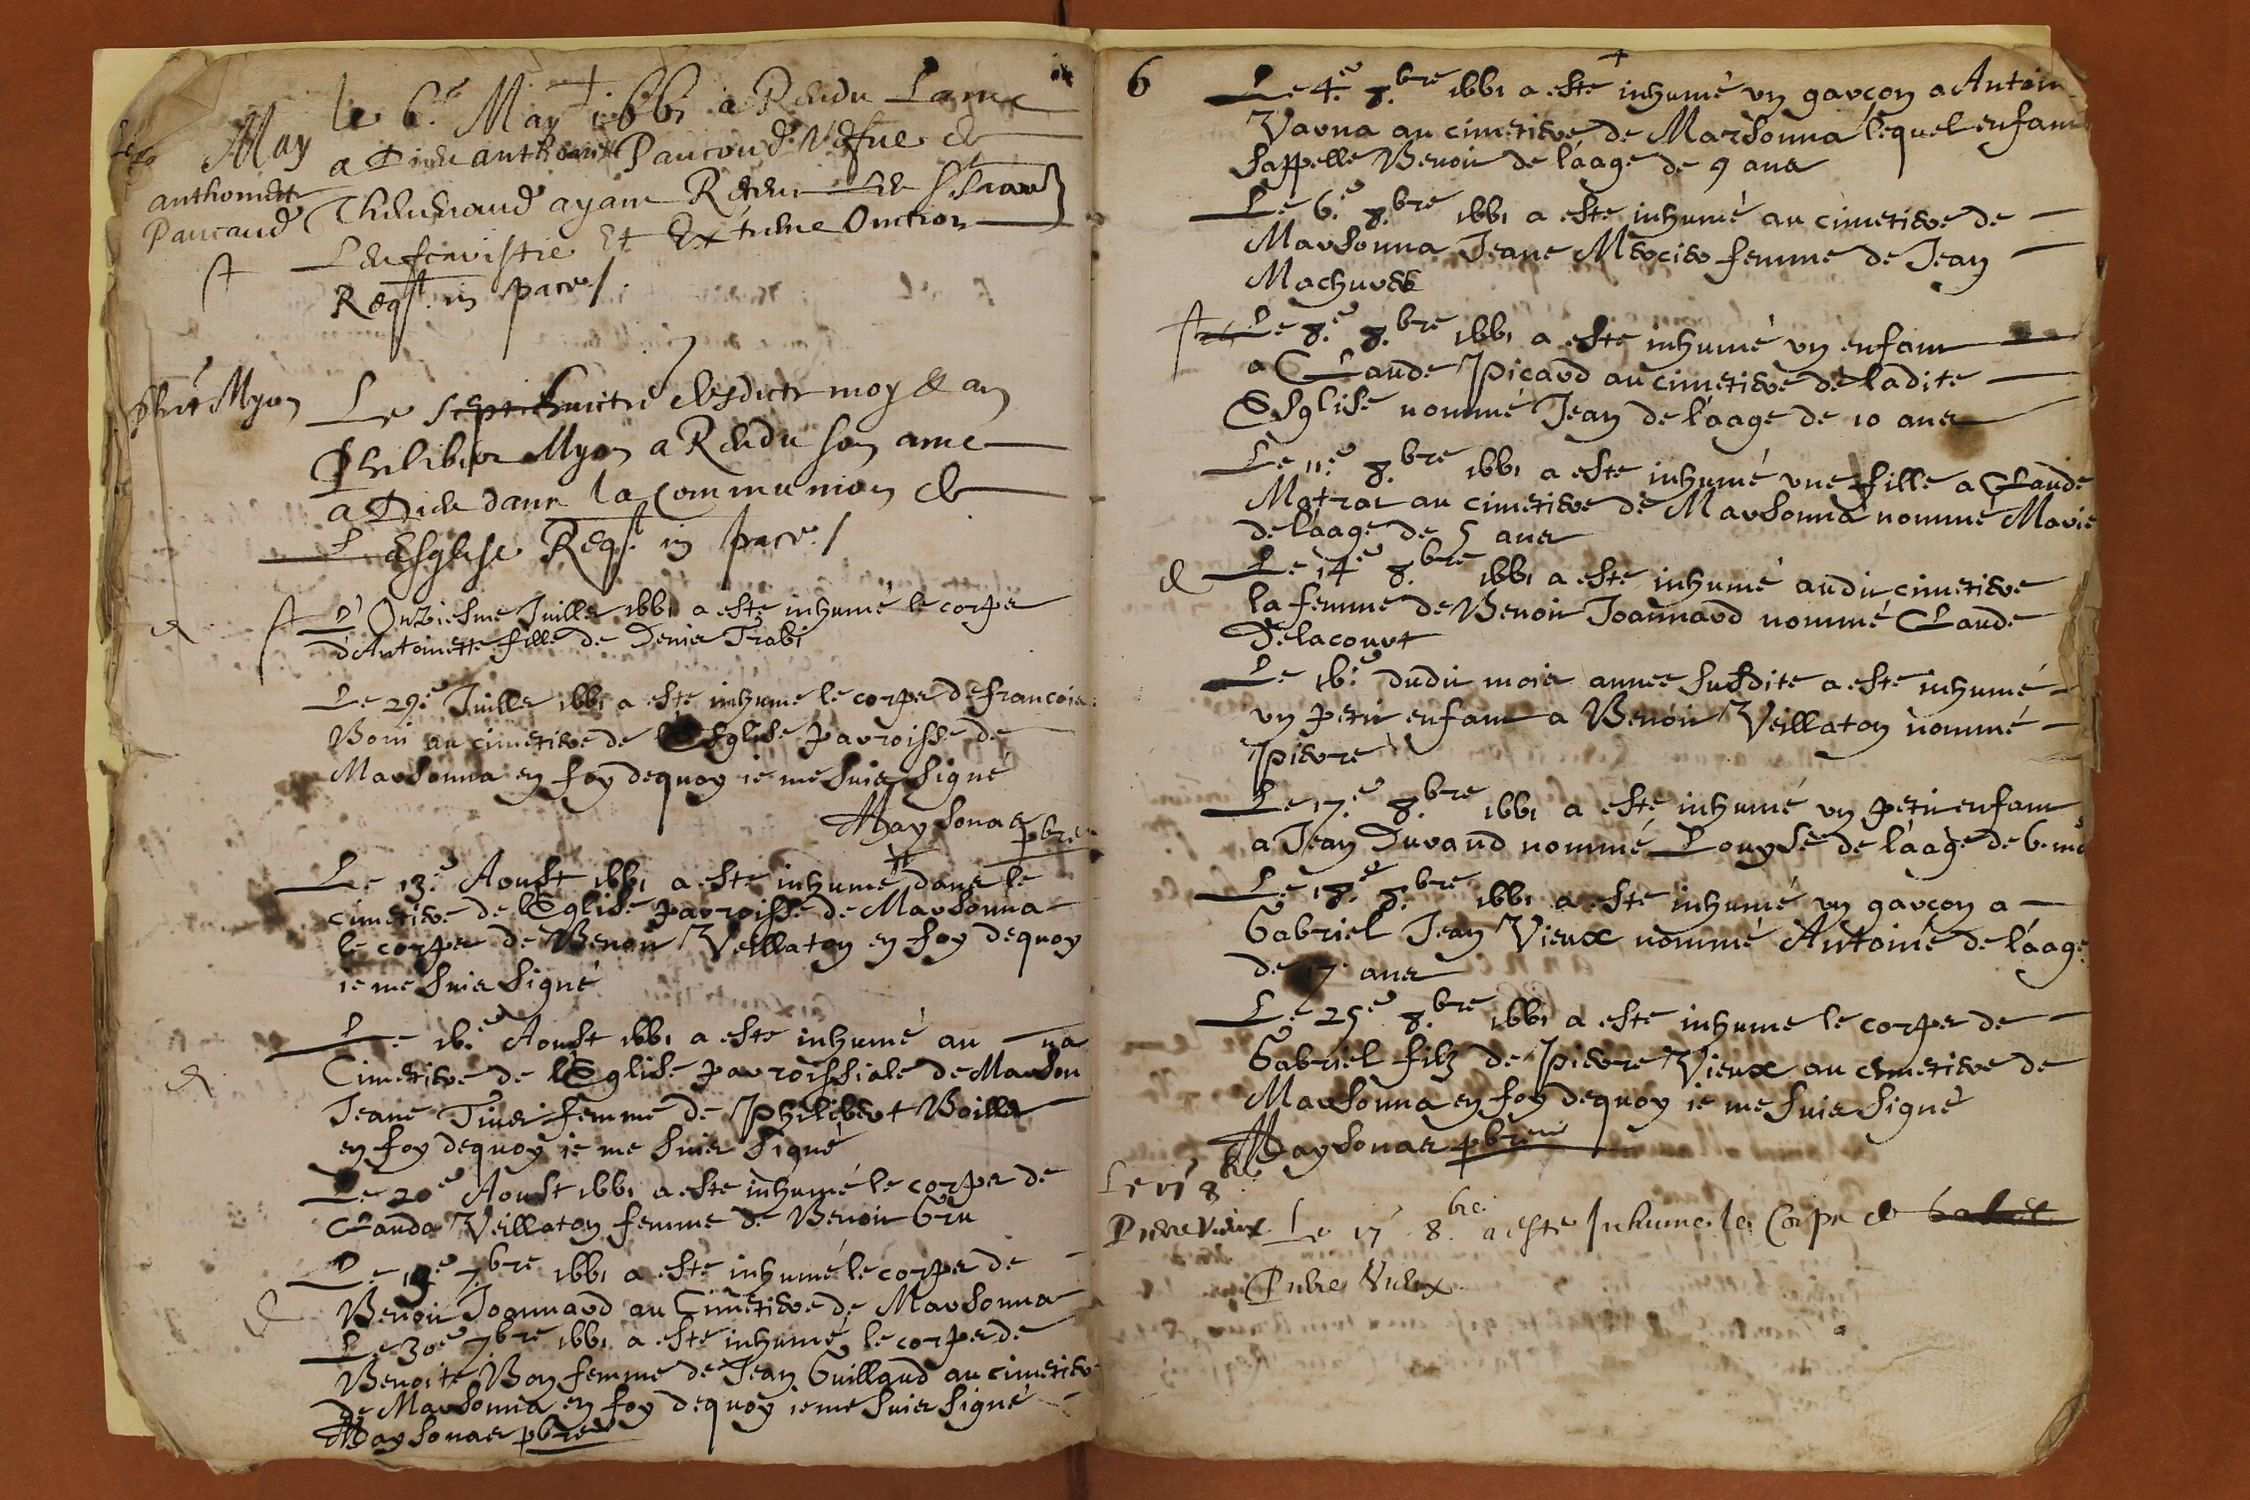 May
le 6e May 1661 a Rendu Lame
a Dieu anthoinette Paucaud Vefue de
anthoinette
Paucaud
Thevenaud ayant Receu les Strants
Leucaristie Et Extreme Onction
Reqst. in pace /.
Philt Myon
Le huictie desdicts moy & an
Philibert Myon a Rendu son ame
a Dieu dans la Communion de
L Esglise Reqst. in pace /
L'Onziesme Juillet 1661 a esté inhumé le corps
d'Antoinette fille de Denis Trabi
Le 29e Juillet 1661 a esté inhumé le corps de francois
Boni au cimetiere de l'Esglise parroisse de
Marsonna en foy dequoy ie me suis signé
Maysonas pbre
Le 13e Aoust 1661 a esté inhumé dans le
cimetiere de l'Eglise parroisse de Marsonna
le corps de Benoit Veillaton en foy dequoy
ie me suis signé
Le 16e Aoust 1661 a esté inhumé au
Cimetiere de l'Eglise parroissiale de Marsonna
Jeane Tiuer femme de Philibert Boillet
en foy dequoy ie me suis signé
Le 20e Aoust 1661 a esté inhumé le corps de
Clauda Veillaton femme de Benoit Gru
Le 19e 7.bre 1661 a esté inhumé le corps de
Benoit Joannard au Cimetiere de Marsonna
Le 30e 7.bre 1661 a esté inhumé le corps de
Benoite Bon femme de Jean Guillaud au cimetiere
de Marsonna en foy dequoy ie me suis signé
Maysonas pbre
6
Le 4.e 8.bre 1661 a esté inhumé vn garçon a Antoin
Varna au cimetiere de Marsonna lequel enfant
sappelle Benoit de l'aage de 9 ans
Le 6.e 8.bre 1661 a esté inhumé au cimetiere de
Marsonna Jeane Mercier femme de Jean
Machures
Le 8.e 8.bre 1661 a esté inhumé vn enfant
a Claude Picard au cimetiere de ladite
Esglise nommé Jean de l'aage de 10 ans
Le 11.e 8.bre 1661 a esté inhumé vne fille a Claude
Matrat au cimetiere de Marsonna nommé Marie
de laage de 5 ans
Le 14.e 8.bre 1661 a esté inhumé audit cimetiere
la femme de Benoit Joannard nommé Claude
Delacourt
Le 16.e dudit mois annee susdite a esté inhumé
vn petit enfant a Benoit Veillaton nommé
Pierre
Le 17.e 8.bre 1661 a esté inhumé vn petit enfant
a Jean Durand nommé Louyse de l'aage de 6. moi
Le 18.e 8.bre 1661 a esté inhumé vn garçon a
Gabriel Jean Vieux nommé Antoine de l'aage
de 17. ans
Le 25e 8.bre 1661 a esté inhumé le corps de
Gabriel filz de Pierre Vieux au cimetiere de
Marsonna en foy dequoy ie me suis signé
Maysonas pbre
Le 17 8bre
Pierre Vieux
Le 17 8.bre a este Inhume le Corps de
Pierre Vieux